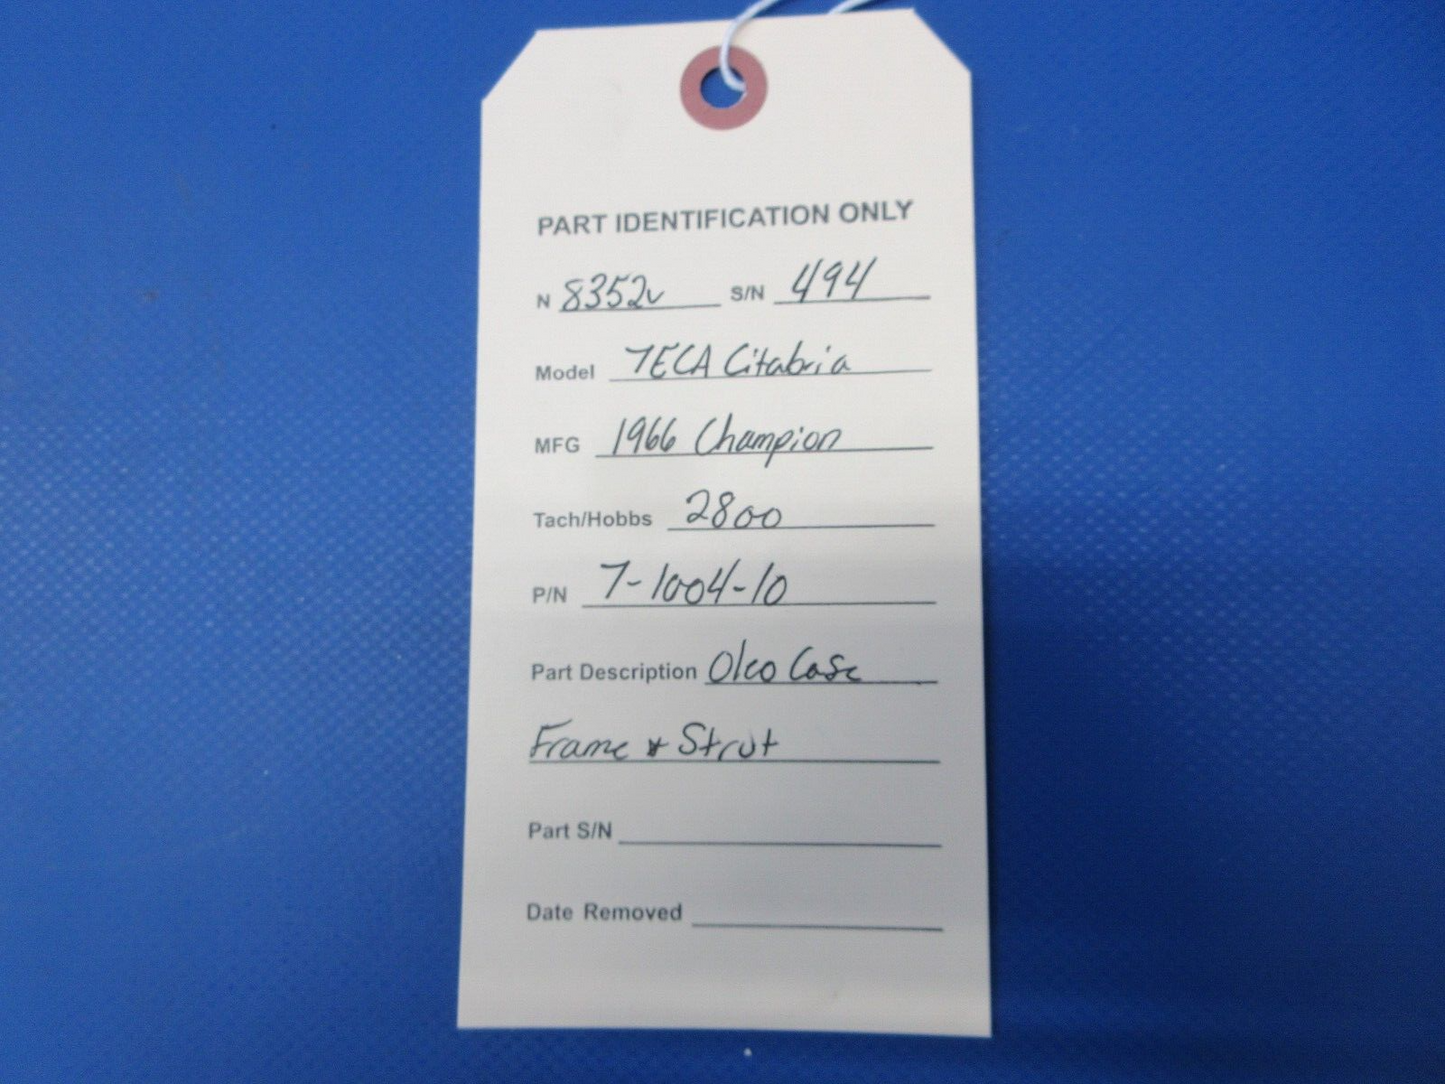 PART IDENTIFICATION ONLY
N 8352v S/N 494
Model 7ECA Citabria
MFG 1966 Champion
Tach/Hobbs 2800
P/N 7-1004-10
Part Description Oleo Case
Frame & Strut
Part S/N
Date Removed